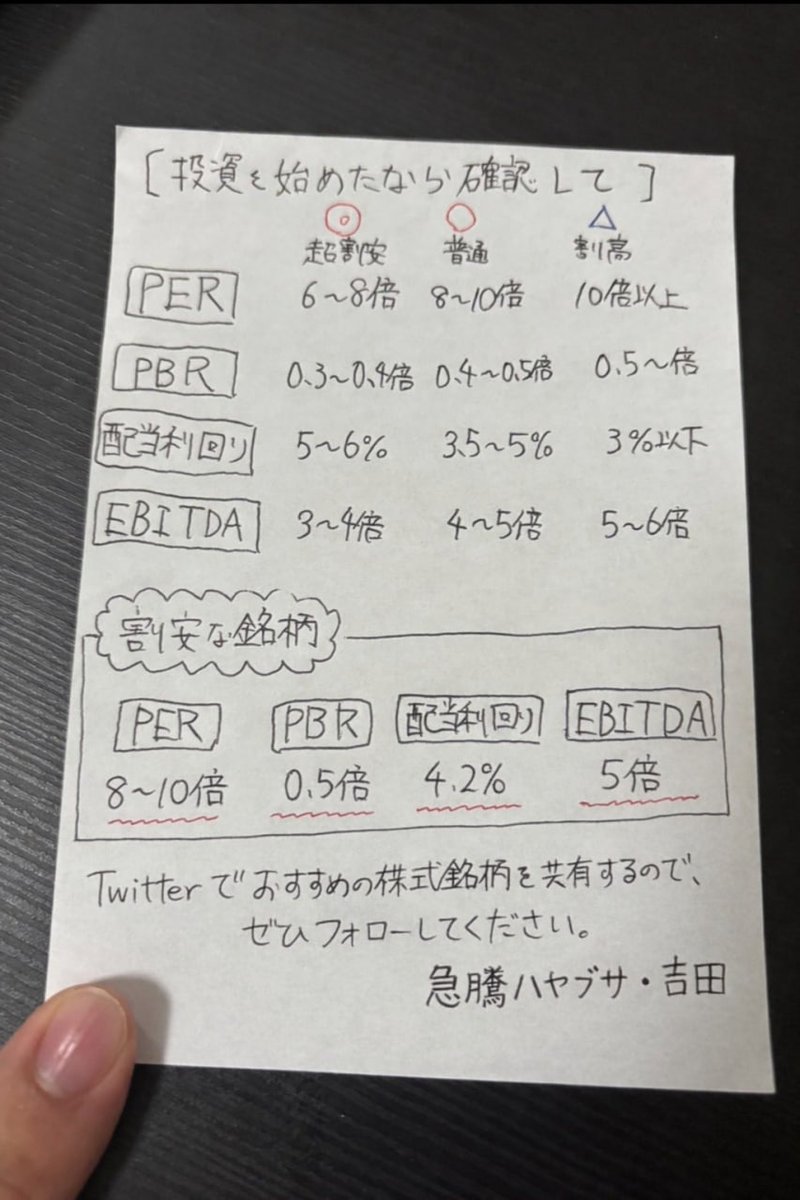 [投資を始めたなら確認して]
◎ ○ △
超割安 普通 割り高
PER 6〜8倍 8〜10倍 10倍以上
PBR 0.3〜0.4倍 0.4〜0.5倍 0.5〜倍
配当利回り 5〜6% 3.5〜5% 3%以下
EBITDA 3〜4倍 4〜5倍 5〜6倍
割り安な銘柄
PER PBR 配当利回り EBITDA
8〜10倍 0.5倍 4.2% 5倍
Twitterでおすすめの株式銘柄を共有するので、
ぜひフォローしてください。
急騰ハヤブサ・吉田